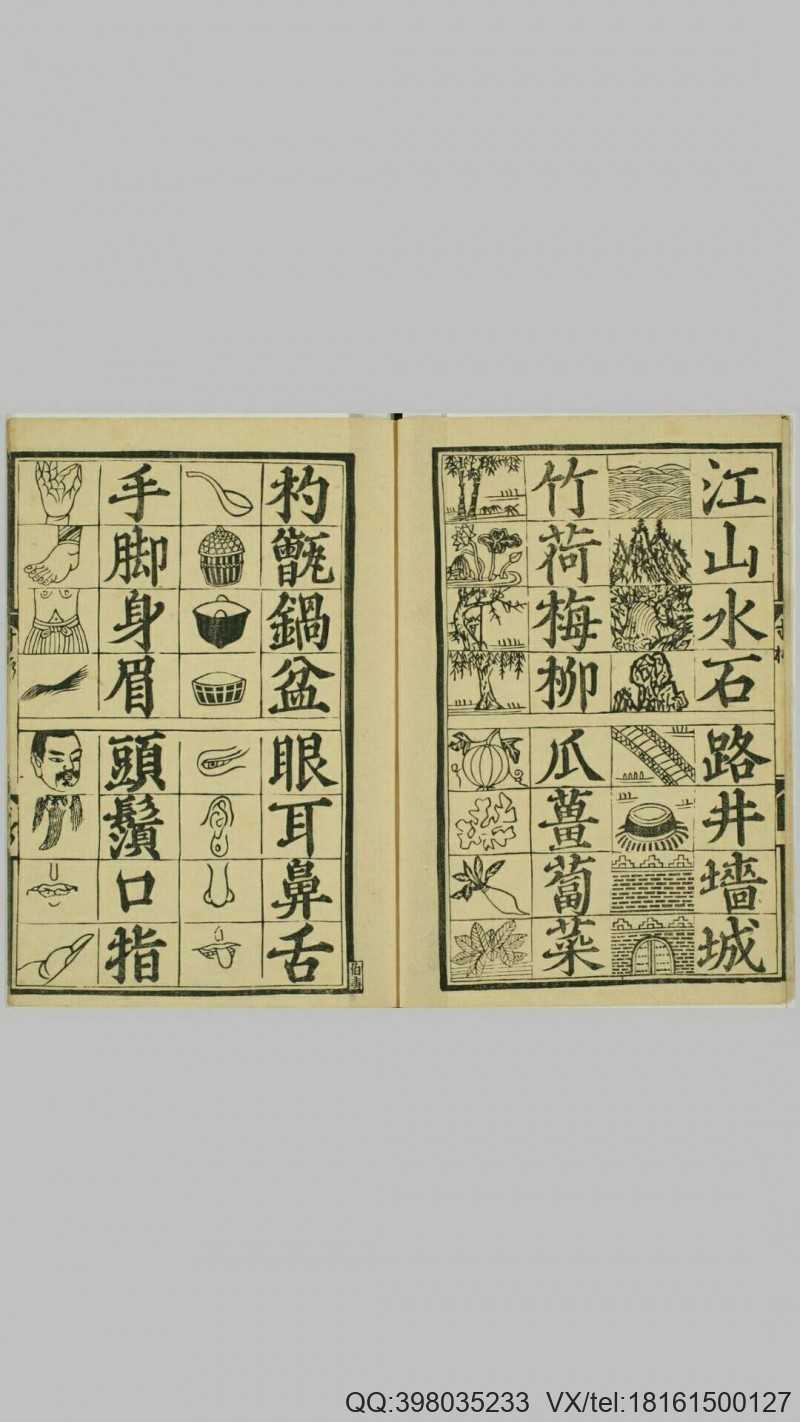 江山水石
路井墻城
竹荷梅柳
瓜薑蔔菜
杓甑鍋盆
眼耳鼻舌
手脚身眉
頭鬚口指
QQ:398035233 VX/tel:18161500127